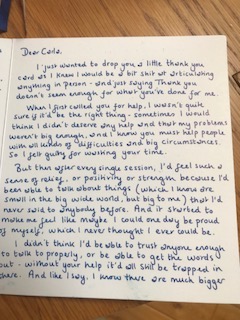 Dear Carla,
I just wanted to drop you a little thank you
card as I knew I would be a bit shit at articulating
anything in person - and just saying Thank you
doesn't seem enough for what you've done for me.
When I first called you for help, I wasn't quite
sure if it'd be the right thing - sometimes I would
think I didn't deserve any help and that my problems
weren't big enough, and I know you must help people
with all kinds of difficulties and big circumstances.
So I felt guilty for wasting your time.
But then after every single session, I'd feel such a
sense of relief, or positivity or strength because I'd
been able to talk about things (which I know are
small in the big wide world, but big to me) that I'd
never said to anybody before. And it started to
make me feel like maybe I could one day be proud
of myself, which I never thought I ever could be.
I didn't think I'd be able to trust anyone enough
to talk to properly, or be able to get the words
out - without your help it'd all still be trapped in
there. And like I say, I know there are much bigger